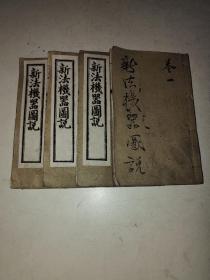 新法機器圖說
新法機器圖說
新法機器圖說
卷一
新法機器圖說